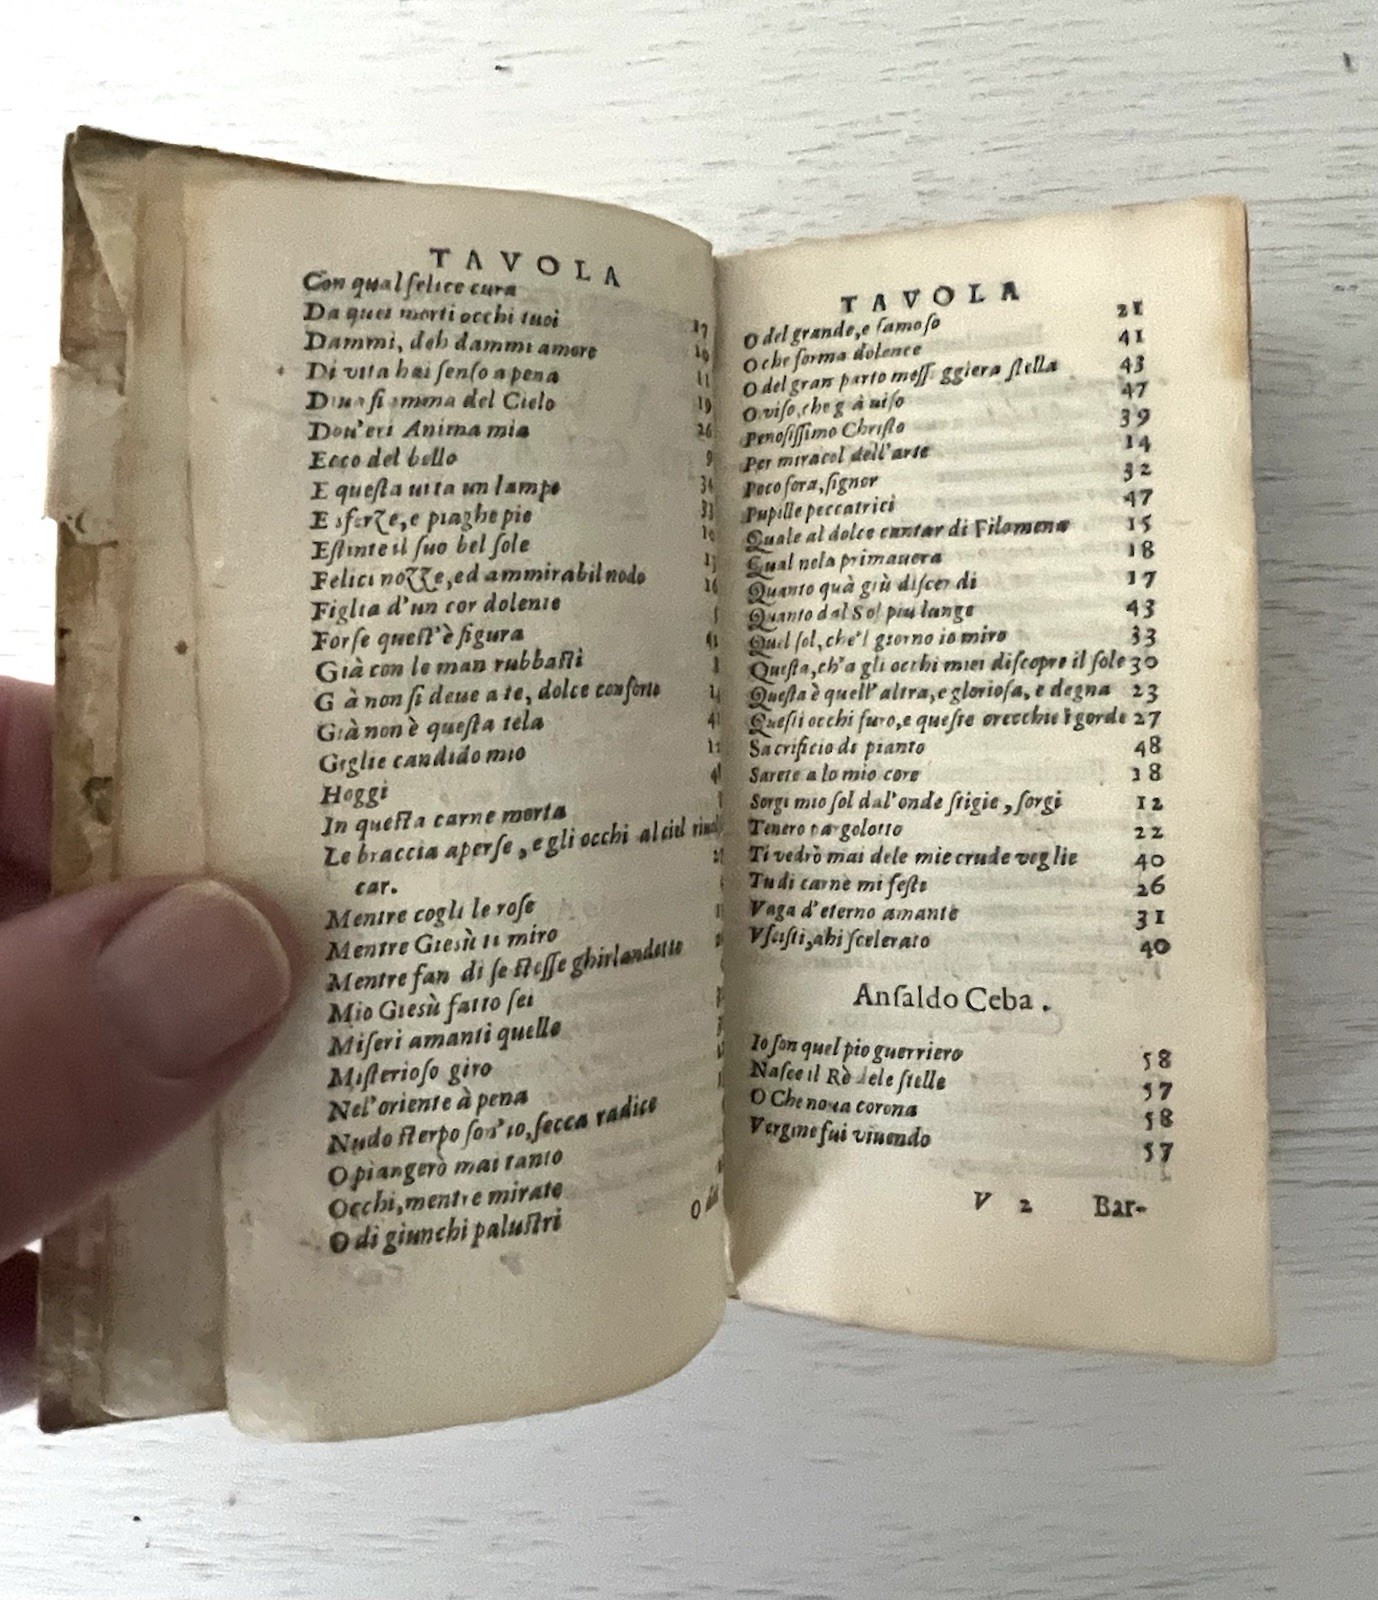 TAVOLA
Con qual felice cura
Da quei morti occhi tuoi 17
Dammi, deh dammi amore
Di vita hai senso a pena 11
D'una fiamma del Cielo 19
Dou'eri Anima mia 26
Ecco del bello 9
E questa uita un lampo
E sferze, e piaghe pie 33
Estinte il suo bel sole
Felici nozze, ed ammirabil nodo
Figlia d'un cor dolente 26
Forse quest'è figura
Già con le man rubbasti
G à non si deue a te, dolce conforto
Già non è questa tela
Giglie candido mio
Hoggi
In questa carne morta
Le braccia aperse, e gli occhi al ciel
car.
Mentre cogli le rose
Mentre Giesù ti miro
Mentre fan di se stesse ghirlandette
Mio Giesù fatto sei
Miseri amanti quello
Misterioso giro
Nel'oriente à pena
Nudo sterpo son'io, secca radice
O piangerò mai tanto
Occhi, mentre mirate
O di giunchi palustri
O
TAVOLA
O del grande, e famoso 21
O che forma dolente 41
O del gran parto mess ggiera stella 43
O viso, che g à uiso 47
Penosissimo Christo 39
Per miracol dell'arte 14
Poco fora, signor 32
Pupille peccatrici 47
Quale al dolce cantar di Filomena 15
Qual nela primauera 18
Quanto quà giù discendi 17
Quanto dal Sol piu lunge 43
Quel sol, che'l giorno io miro 33
Questa, ch'a gli occhi miei discopre il sole 30
Questa è quell'altra, e gloriosa, e degna 23
Questi occhi furo, e queste orecchie 27
Sacrificio di pianto 48
Sarete a lo mio core 18
Sorgi mio sol dal'onde stigie, sorgi 12
Tenero pargolotto 22
Ti vedrò mai dele mie crude veglie 40
Tu di carne mi feste 26
Vaga d'eterno amante 31
Vscisti, ahi scelerato 40
Ansaldo Ceba.
Io son quel pio guerriero 58
Nasce il Rè dele stelle 57
O Che noua corona 58
Vergine fui viuendo 57
V 2 Bar-